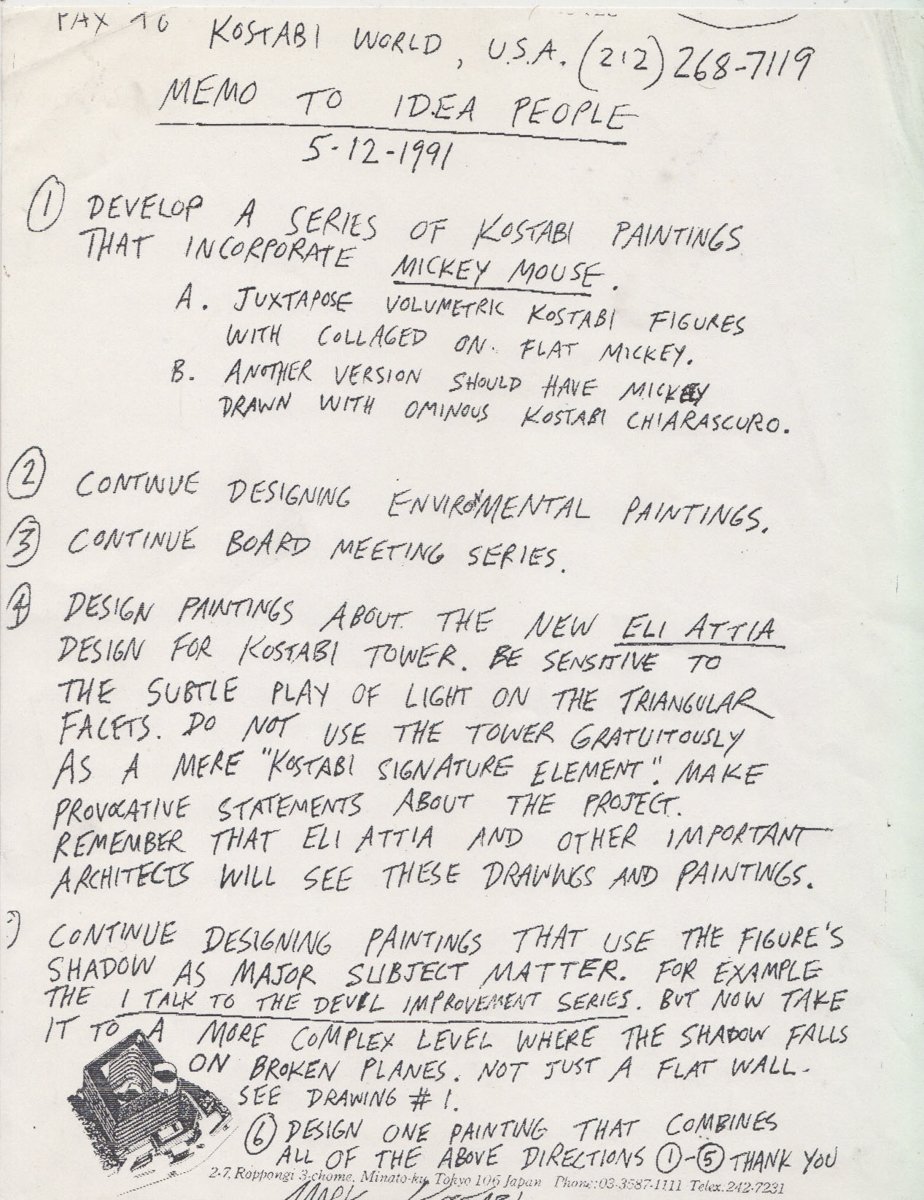 FAX TO KOSTABI WORLD, U.S.A. (212) 268-7119
MEMO TO IDEA PEOPLE
5-12-1991
① DEVELOP A SERIES OF KOSTABI PAINTINGS
THAT INCORPORATE MICKEY MOUSE.
A. JUXTAPOSE VOLUMETRIC KOSTABI FIGURES
WITH COLLAGED ON FLAT MICKEY.
B. ANOTHER VERSION SHOULD HAVE MICKEY
DRAWN WITH OMINOUS KOSTABI CHIARASCURO.
② CONTINUE DESIGNING ENVIROMENTAL PAINTINGS.
③ CONTINUE BOARD MEETING SERIES.
④ DESIGN PAINTINGS ABOUT THE NEW ELI ATTIA
DESIGN FOR KOSTABI TOWER. BE SENSITIVE TO
THE SUBTLE PLAY OF LIGHT ON THE TRIANGULAR
FACETS. DO NOT USE THE TOWER GRATUITOUSLY
AS A MERE "KOSTABI SIGNATURE ELEMENT". MAKE
PROVOCATIVE STATEMENTS ABOUT THE PROJECT.
REMEMBER THAT ELI ATTIA AND OTHER IMPORTANT
ARCHITECTS WILL SEE THESE DRAWINGS AND PAINTINGS.
CONTINUE DESIGNING PAINTINGS THAT USE THE FIGURE'S
SHADOW AS MAJOR SUBJECT MATTER. FOR EXAMPLE
THE I TALK TO THE DEVIL IMPROVEMENT SERIES. BUT NOW TAKE
IT TO A MORE COMPLEX LEVEL WHERE THE SHADOW FALLS
ON BROKEN PLANES. NOT JUST A FLAT WALL.
SEE DRAWING # 1.
⑥ DESIGN ONE PAINTING THAT COMBINES
ALL OF THE ABOVE DIRECTIONS ①-⑤ THANK YOU
2-7, Roppongi 3-chome, Minato-ku, Tokyo 106 Japan Phone:03-3587-1111 Telex.242-7231
MARK KOSTABI